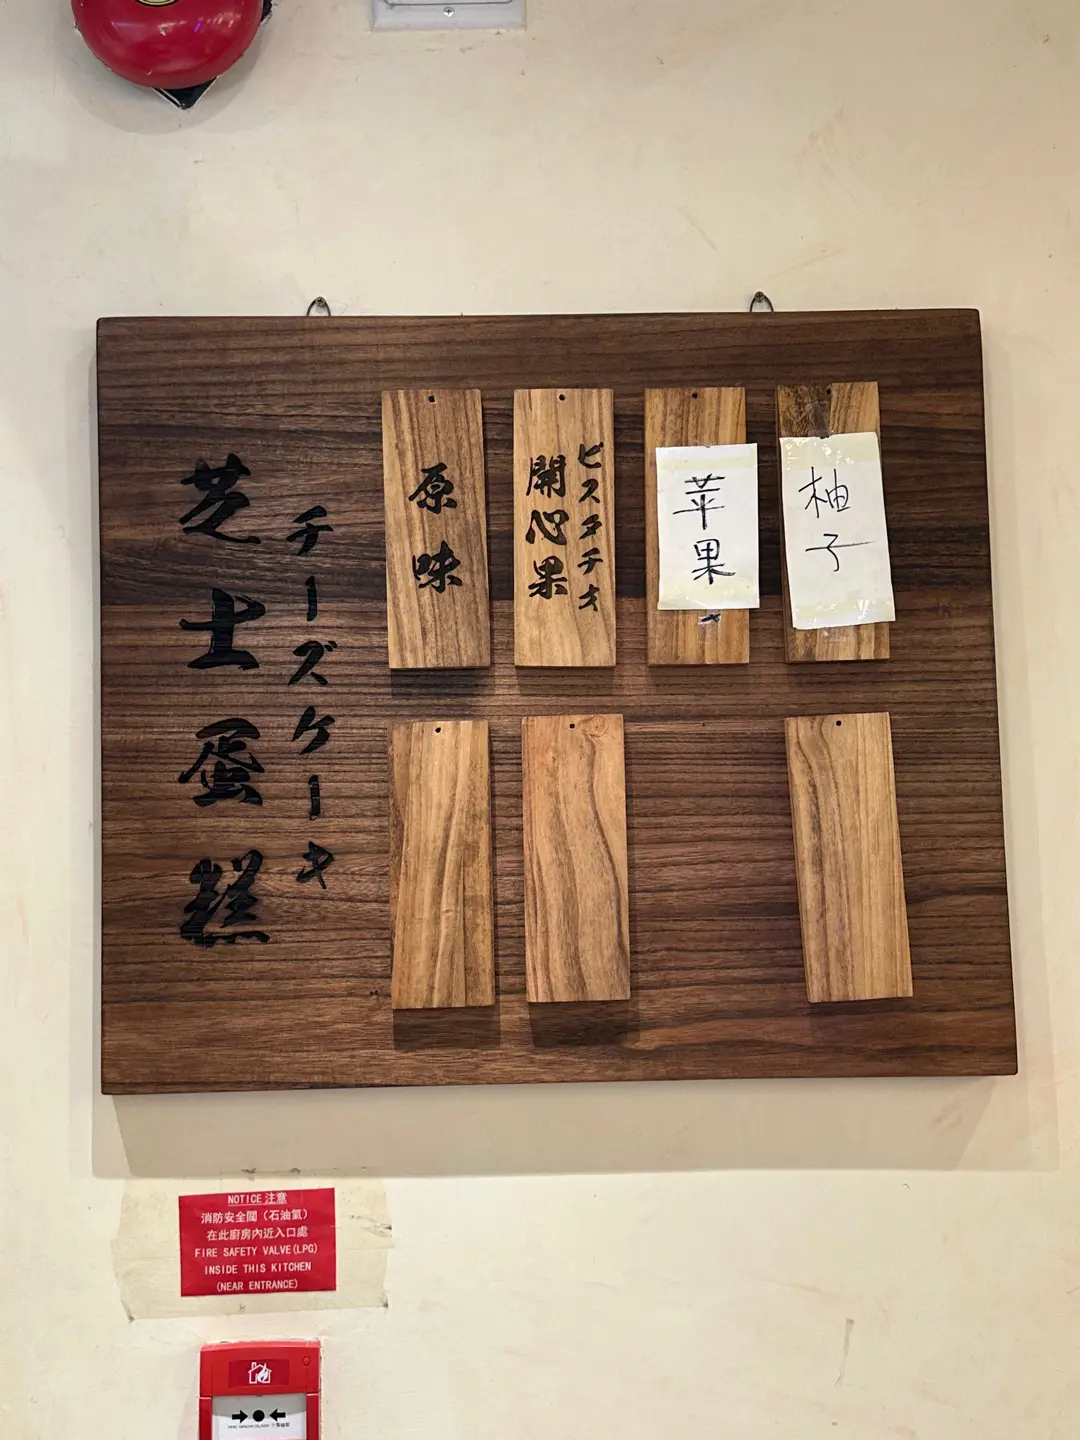 芝士蛋糕
チーズケーキ
原味
開心果
ピスタチオ
苹果
柚子
NOTICE 注意
消防安全閥（石油氣）
在此廚房內近入口處
FIRE SAFETY VALVE(LPG)
INSIDE THIS KITCHEN
(NEAR ENTRANCE)